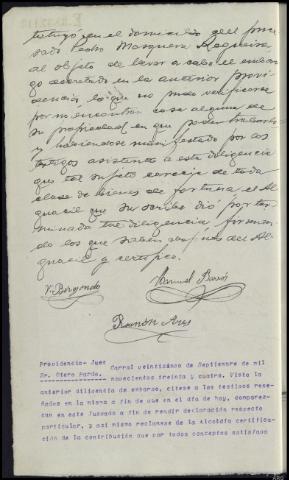 tuyó en el domicilio del procesado Pedro Mosquera Regueira
al objeto de llevar a cabo el embargo decretado en la anterior providencia
lo que no pudo verificarse
por no encontrar cosa alguna de
su propiedad en que poder trabarlo
y habiendose manifestado por los
testigos asistente a esta diligencia
que tal sujeto carece de toda
clase de bienes de fortuna el Alguacil
que suscribe dió por terminada
tal diligencia firmando
los que saben con el Alguacil
y certifico.
V. Bergondo
Manuel Barós
Ramón Ares
Presidencia- Juez
Sr. Otero Pardo.
Carral veintiseis de Septiembre de mil
novecientos treinta y cuatro. Vista la
anterior diligencia de embargo, citese a los testigos rese-
ñados en la misma a fin de que en el día de hoy, comparez-
can en este Juzgado a fin de rendir declaración respecto
particular, y asi mismo reclamese de la Alcaldia certifica-
ción de la contribución que por todos conceptos satisfaga